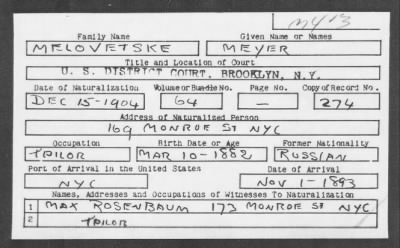 M413
Family Name Given Name or Names
MELOVETSKE MEYER
Title and Location of Court
U. S. DISTRICT COURT, BROOKLYN, N.Y.
Date of Naturalization Volume or Bundle No. Page No. Copy of Record No.
DEC 15-1904 64 — 274
Address of Naturalized Person
169 MONROE ST NYC
Occupation Birth Date or Age Former Nationality
TAILOR MAR 10-1882 RUSSIAN
Port of Arrival in the United States Date of Arrival
NYC NOV 1-1893
Names, Addresses and Occupations of Witnesses To Naturalization
1 MAX ROSENBAUM 173 MONROE ST NYC
2 TAILOR